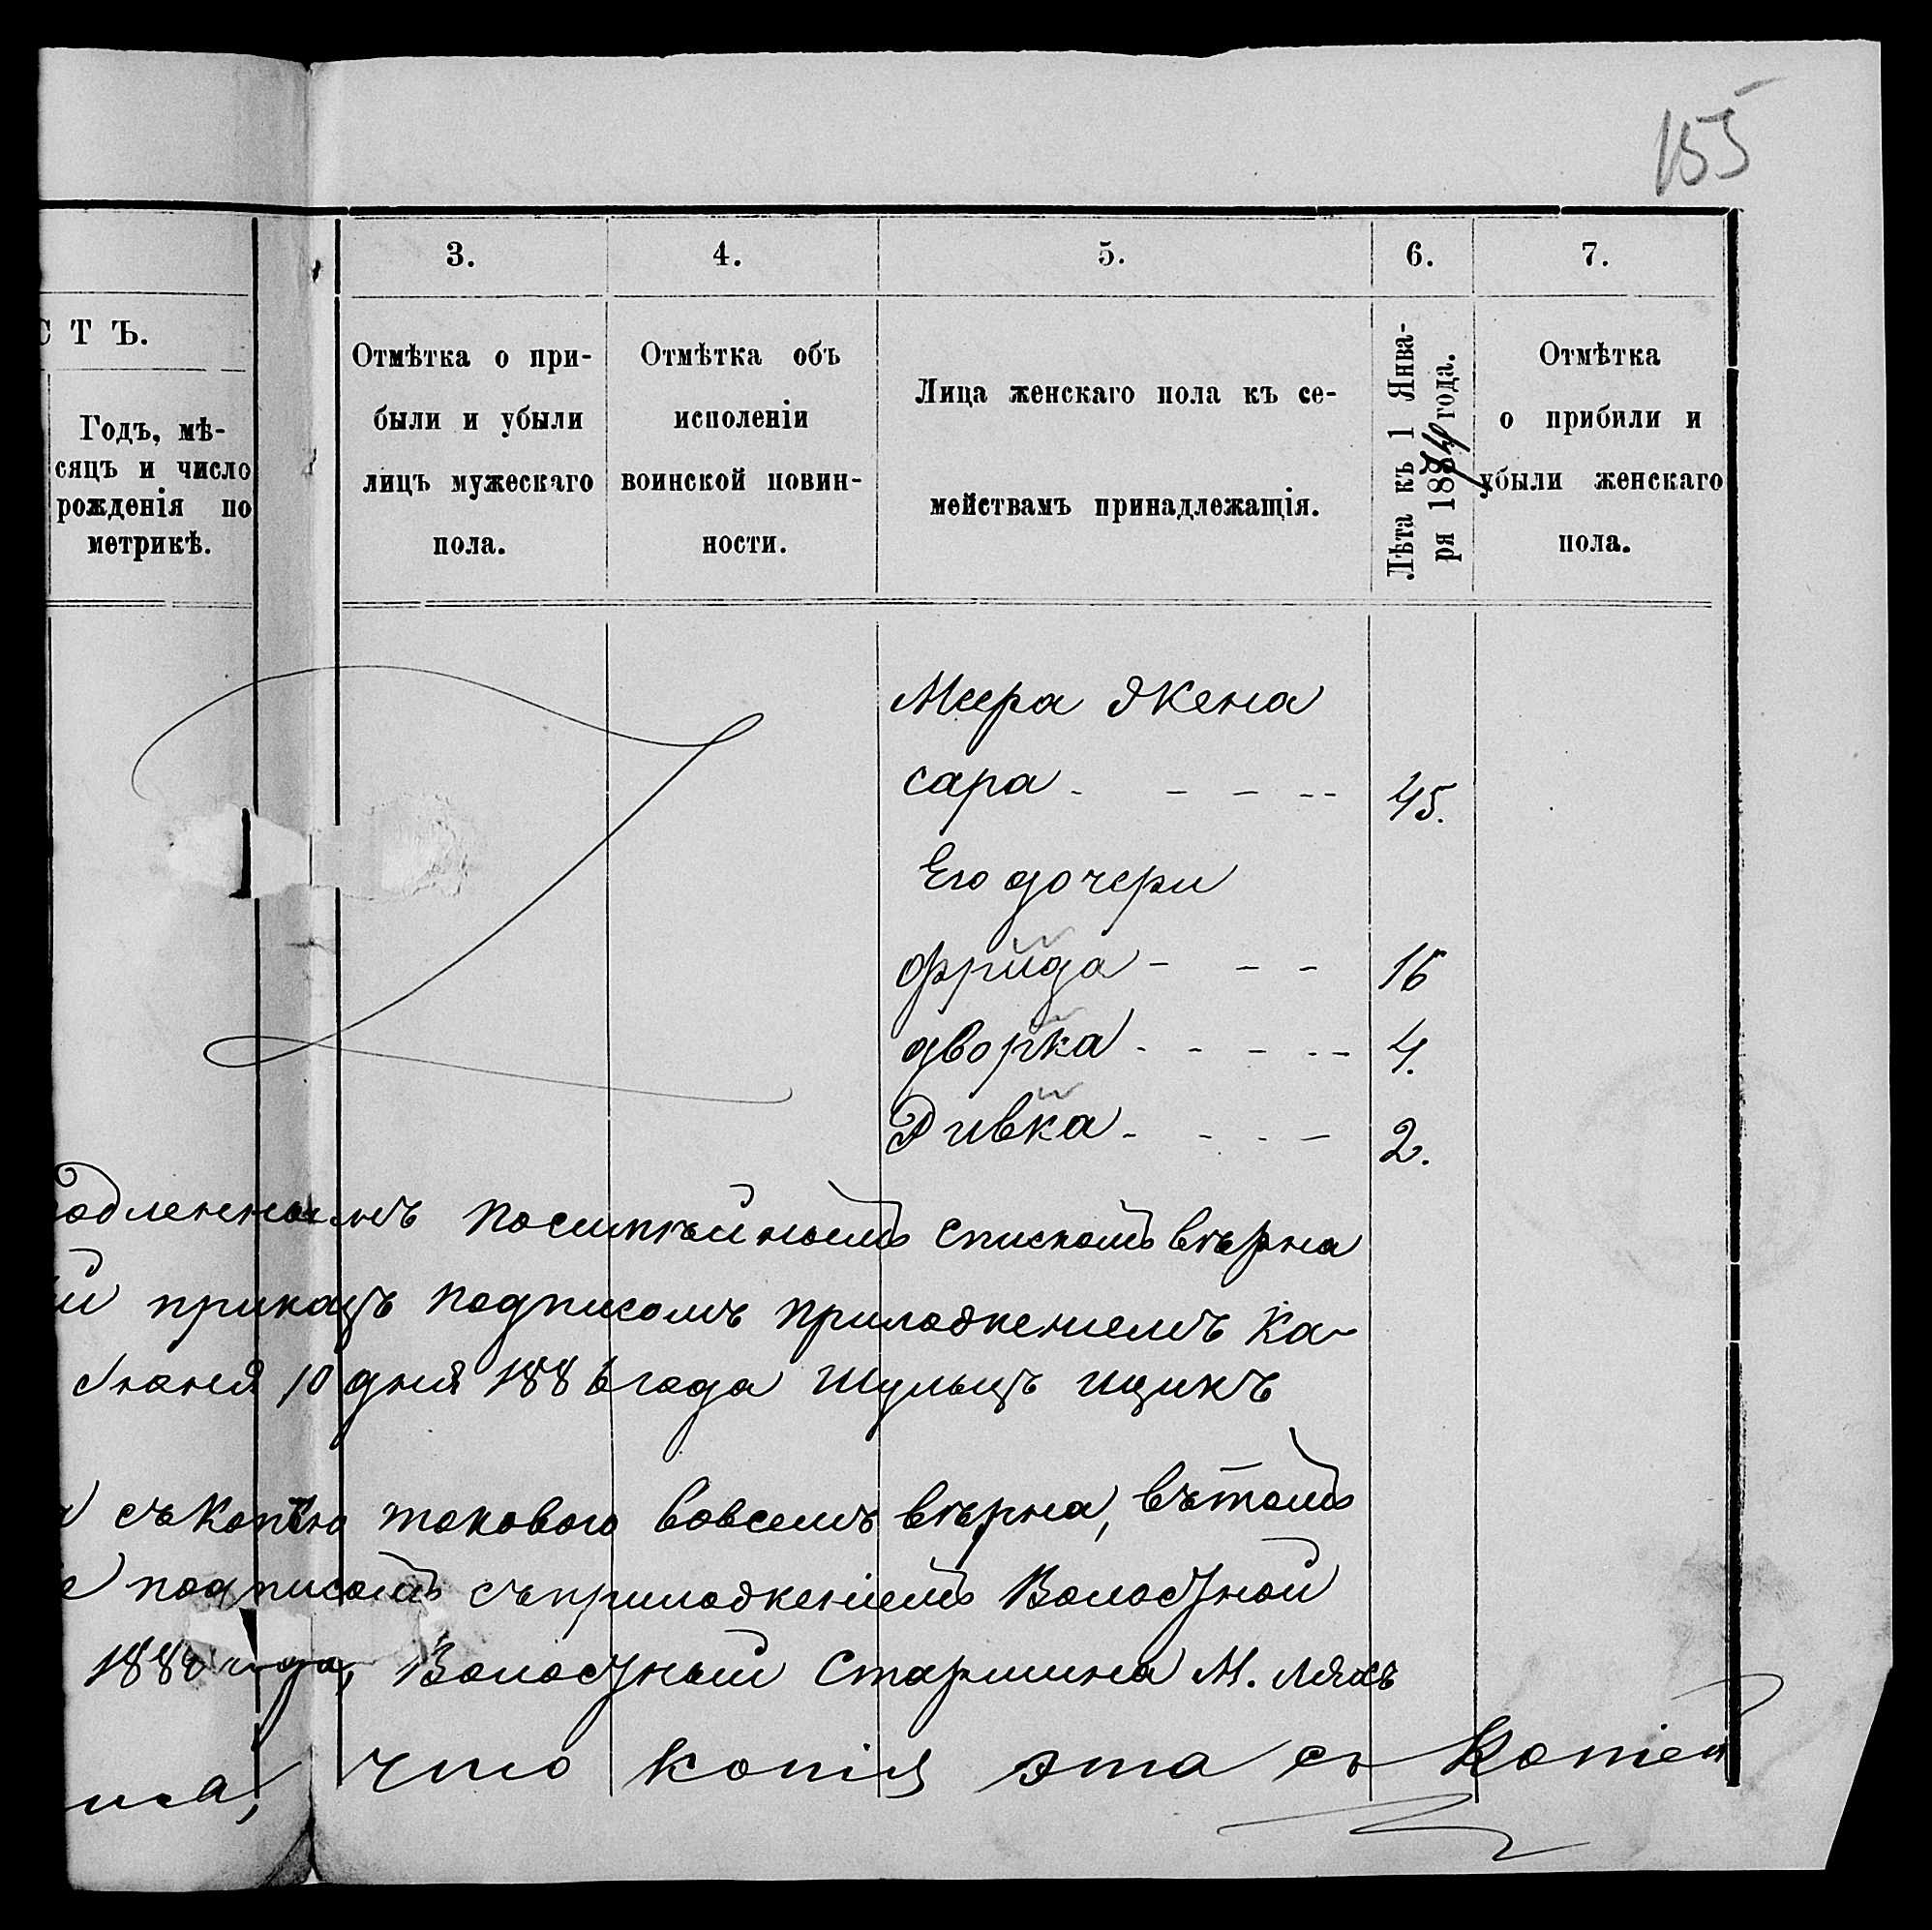 155
3.
4.
5.
6.
7.
СТЪ.
Годъ, мѣ-
сяцъ и число
рожденія по
метрикѣ.
Отмѣтка о при-
были и убыли
лицъ мужескаго
пола.
Отмѣтка объ
исполеніи
воинской повин-
ности.
Лица женскаго пола къ се-
мействамъ принадлежащія.
Лѣта къ 1 Янва-
ря 1884 года.
Отмѣтка
о прибили и
убыли женскаго
пола.
Меера жена
сара - - - -- 45.
Его дочери
фрийда - - - 16
дворка - - - -- 4.
Ривка - - - - 2.
одленнымъ посимѣйнымъ спискомъ вѣрна
й приказъ подписомъ приложениемъ ка-
Июня 10 дня 1886 года Шульцъ ицикъ
съ копѣю такового вовсемъ вѣрна, вътомъ
подписомъ съприложеніемъ Волостной
188 года, Волостный Старшина М. Ляхъ
иса, что копія эта съ Копіей